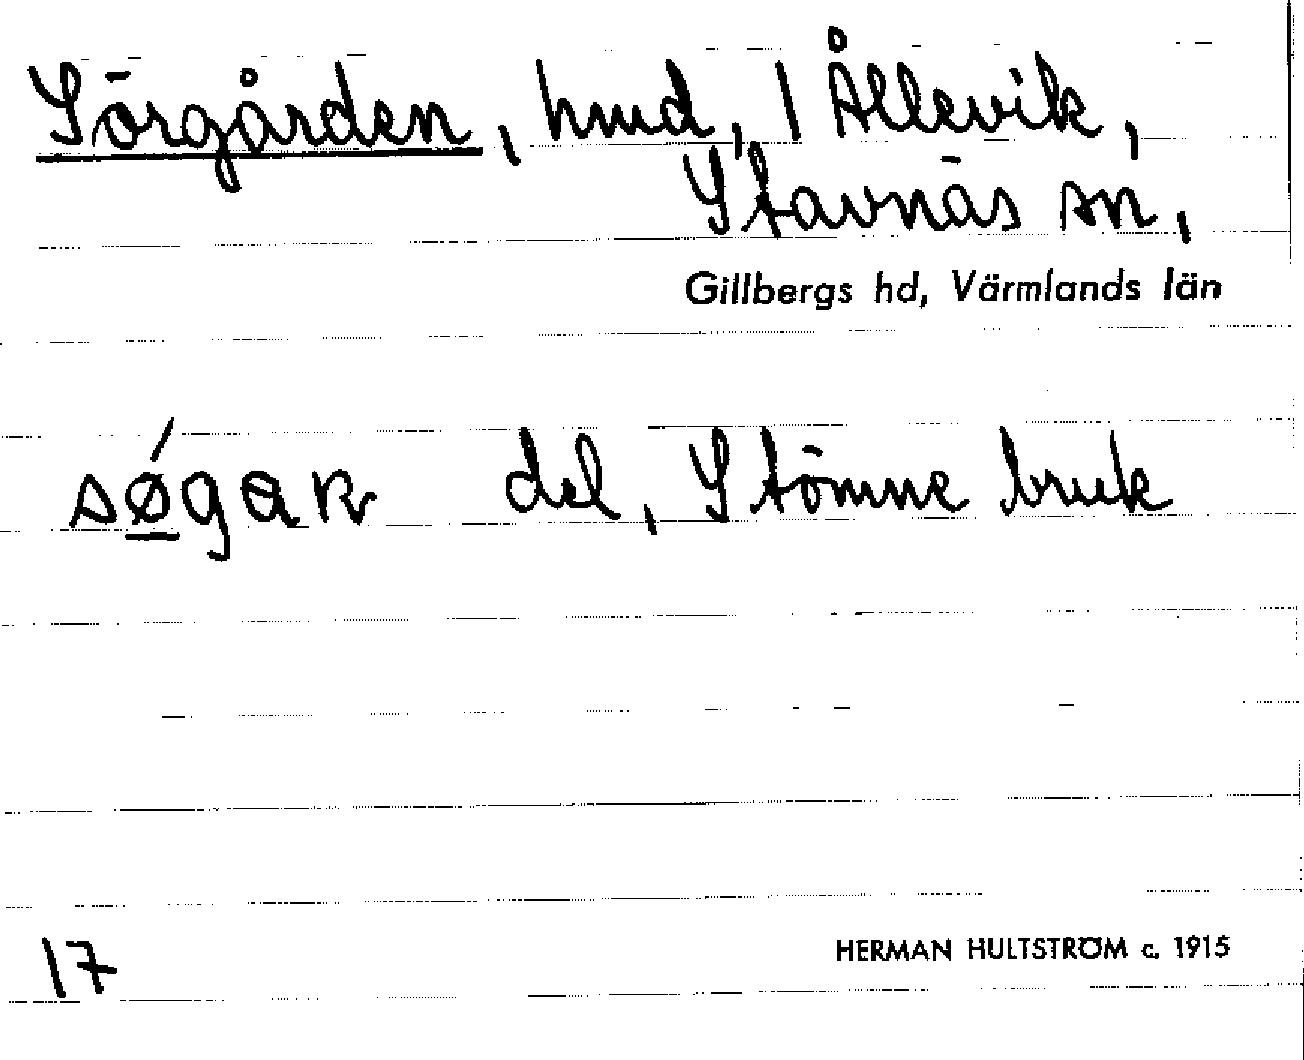 Sörgården, hmd, 1 Ållevik,
Stavnäs sn,
Gillbergs hd, Värmlands län
søgaɳ del, Stömne bruk
17
HERMAN HULTSTRÖM c. 1915